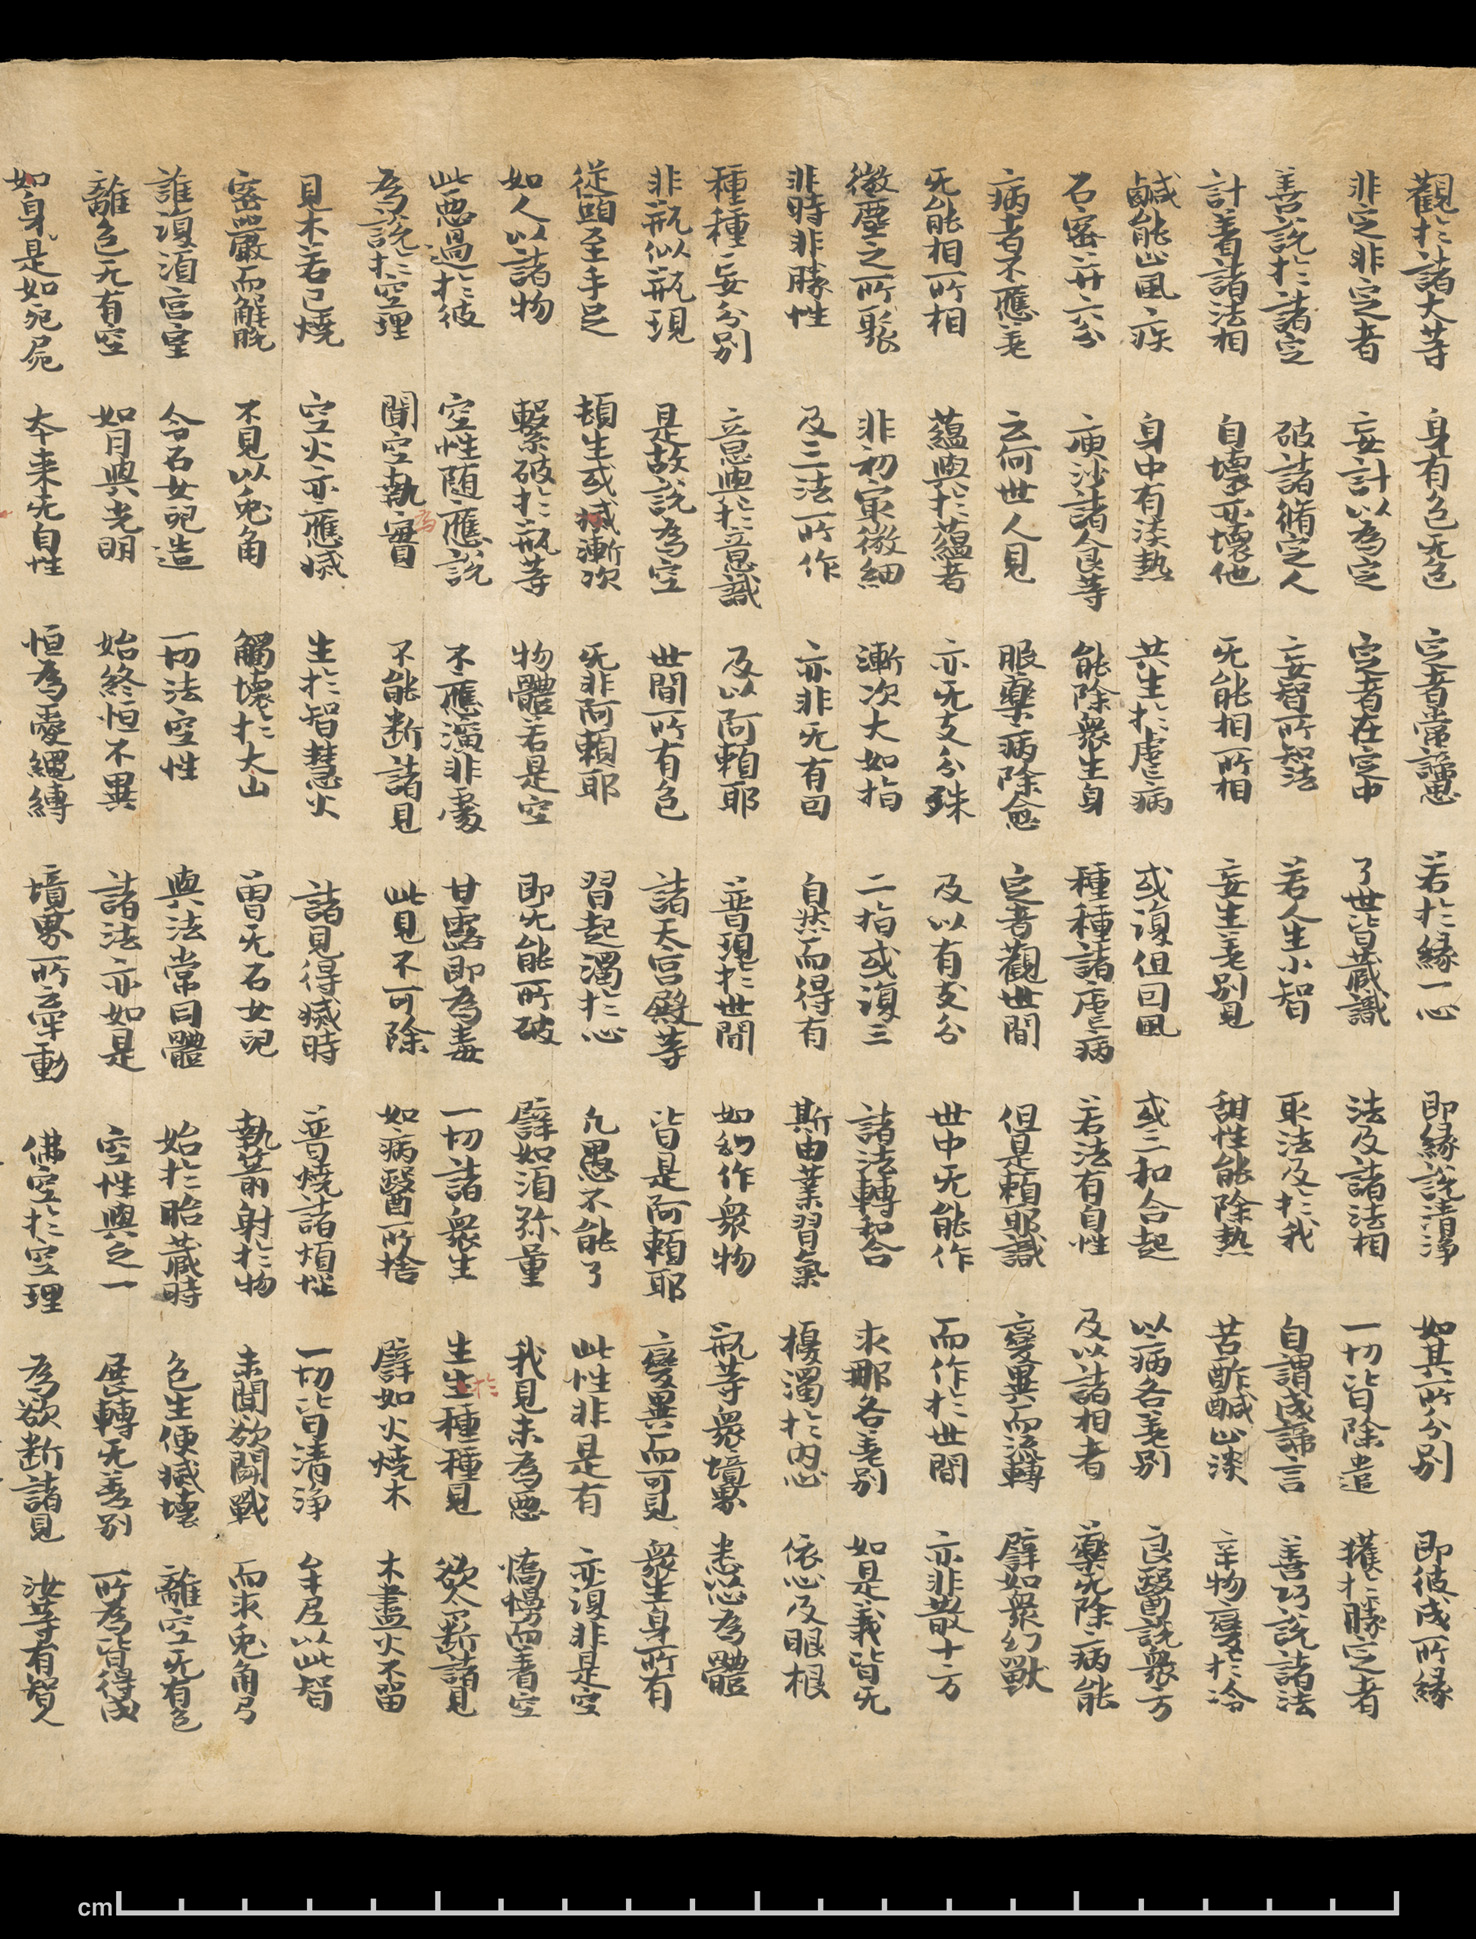 觀於諸大等 身有色无色 定者常諦思 若於緣一心 即緣說清淨 如其所分別 即彼成所緣
非定非定者 妄計以為定 定者在定中 了世皆藏識 法及諸法相 一切皆除遣 獲於勝定者
善說於諸定 破諸脩定人 妄智所知法 若人生小智 取法及於我 自謂成諦言 善巧說諸法
計著諸法相 自壞亦壞他 无能相所相 妄生差別見 甜性能除熱 苦酢醎止淡 辛物變於冷
鹹能止風疾 身中有淡熱 共生於虐病 或復但因風 或三和合起 以病各差別 良醫說眾方
石密并六分 庾沙諸食等 能除眾生身 種種諸虐病 若法有自性 及以諸相者 藥无除病能
病者不應差 云何世人見 服藥病除愈 定者觀世間 但是賴耶識 變異而流轉 譬如眾幻獸
无能相所相 蘊與於蘊者 亦无支分殊 及以有支分 世中无能作 而作於世間 亦非散十方
微塵之所聚 非初㝡微細 漸次大如指 二指或復三 諸法轉和合 求那各差別 如是義皆无
非時非勝性 及三法所作 亦非无有因 自然而得有 斯由業習氣 擾濁於內心 依心及眼根
種種妄分別 意與於意識 及以阿賴耶 普現於世間 如幻作眾物 瓶等眾境界 悉以心為體
非瓶似瓶現 是故說為空 世間所有色 諸天宮殿等 皆是阿賴耶 變異而可見 眾生身所有
從頭至手足 頓生或滅漸次 无非阿賴耶 習起濁於心 凡愚不能了 此性非是有 亦復非是空
如人以諸物 繫破於瓶等 物體若是空 即无能所破 譬如須弥量 我見未為惡 憍慢而著空
此惡過於彼 空性隨應說 不應演非處 甘露即為毒 一切諸眾生 生於生種種見 欲令斷諸見
為說於空理 聞空執為實 不能斷諸見 此見不可除 如病醫所捨 譬如火燒木 木盡火不留
見木若已燒 空火亦應滅 生於智慧火 諸見得滅時 普燒諸煩惱 一切皆清淨 牟尼以此智
密嚴而解脫 不見以兔角 觸壞於大山 曾无石女兒 執箭射於物 未聞欲鬪戰 而求兔角弓
誰復須宮室 令石女兒造 一切法空性 與法常同體 始於胎藏時 色生便滅壞 離空无有色
離色无有空 如月與光明 始終恒不異 諸法亦如是 空性與之一 展轉无差別 所為皆得成
如身是如死屍 本來无自性 恒為愛繩縛 境界所牽動 佛空於空理 為欲斷諸見 汝等有智人